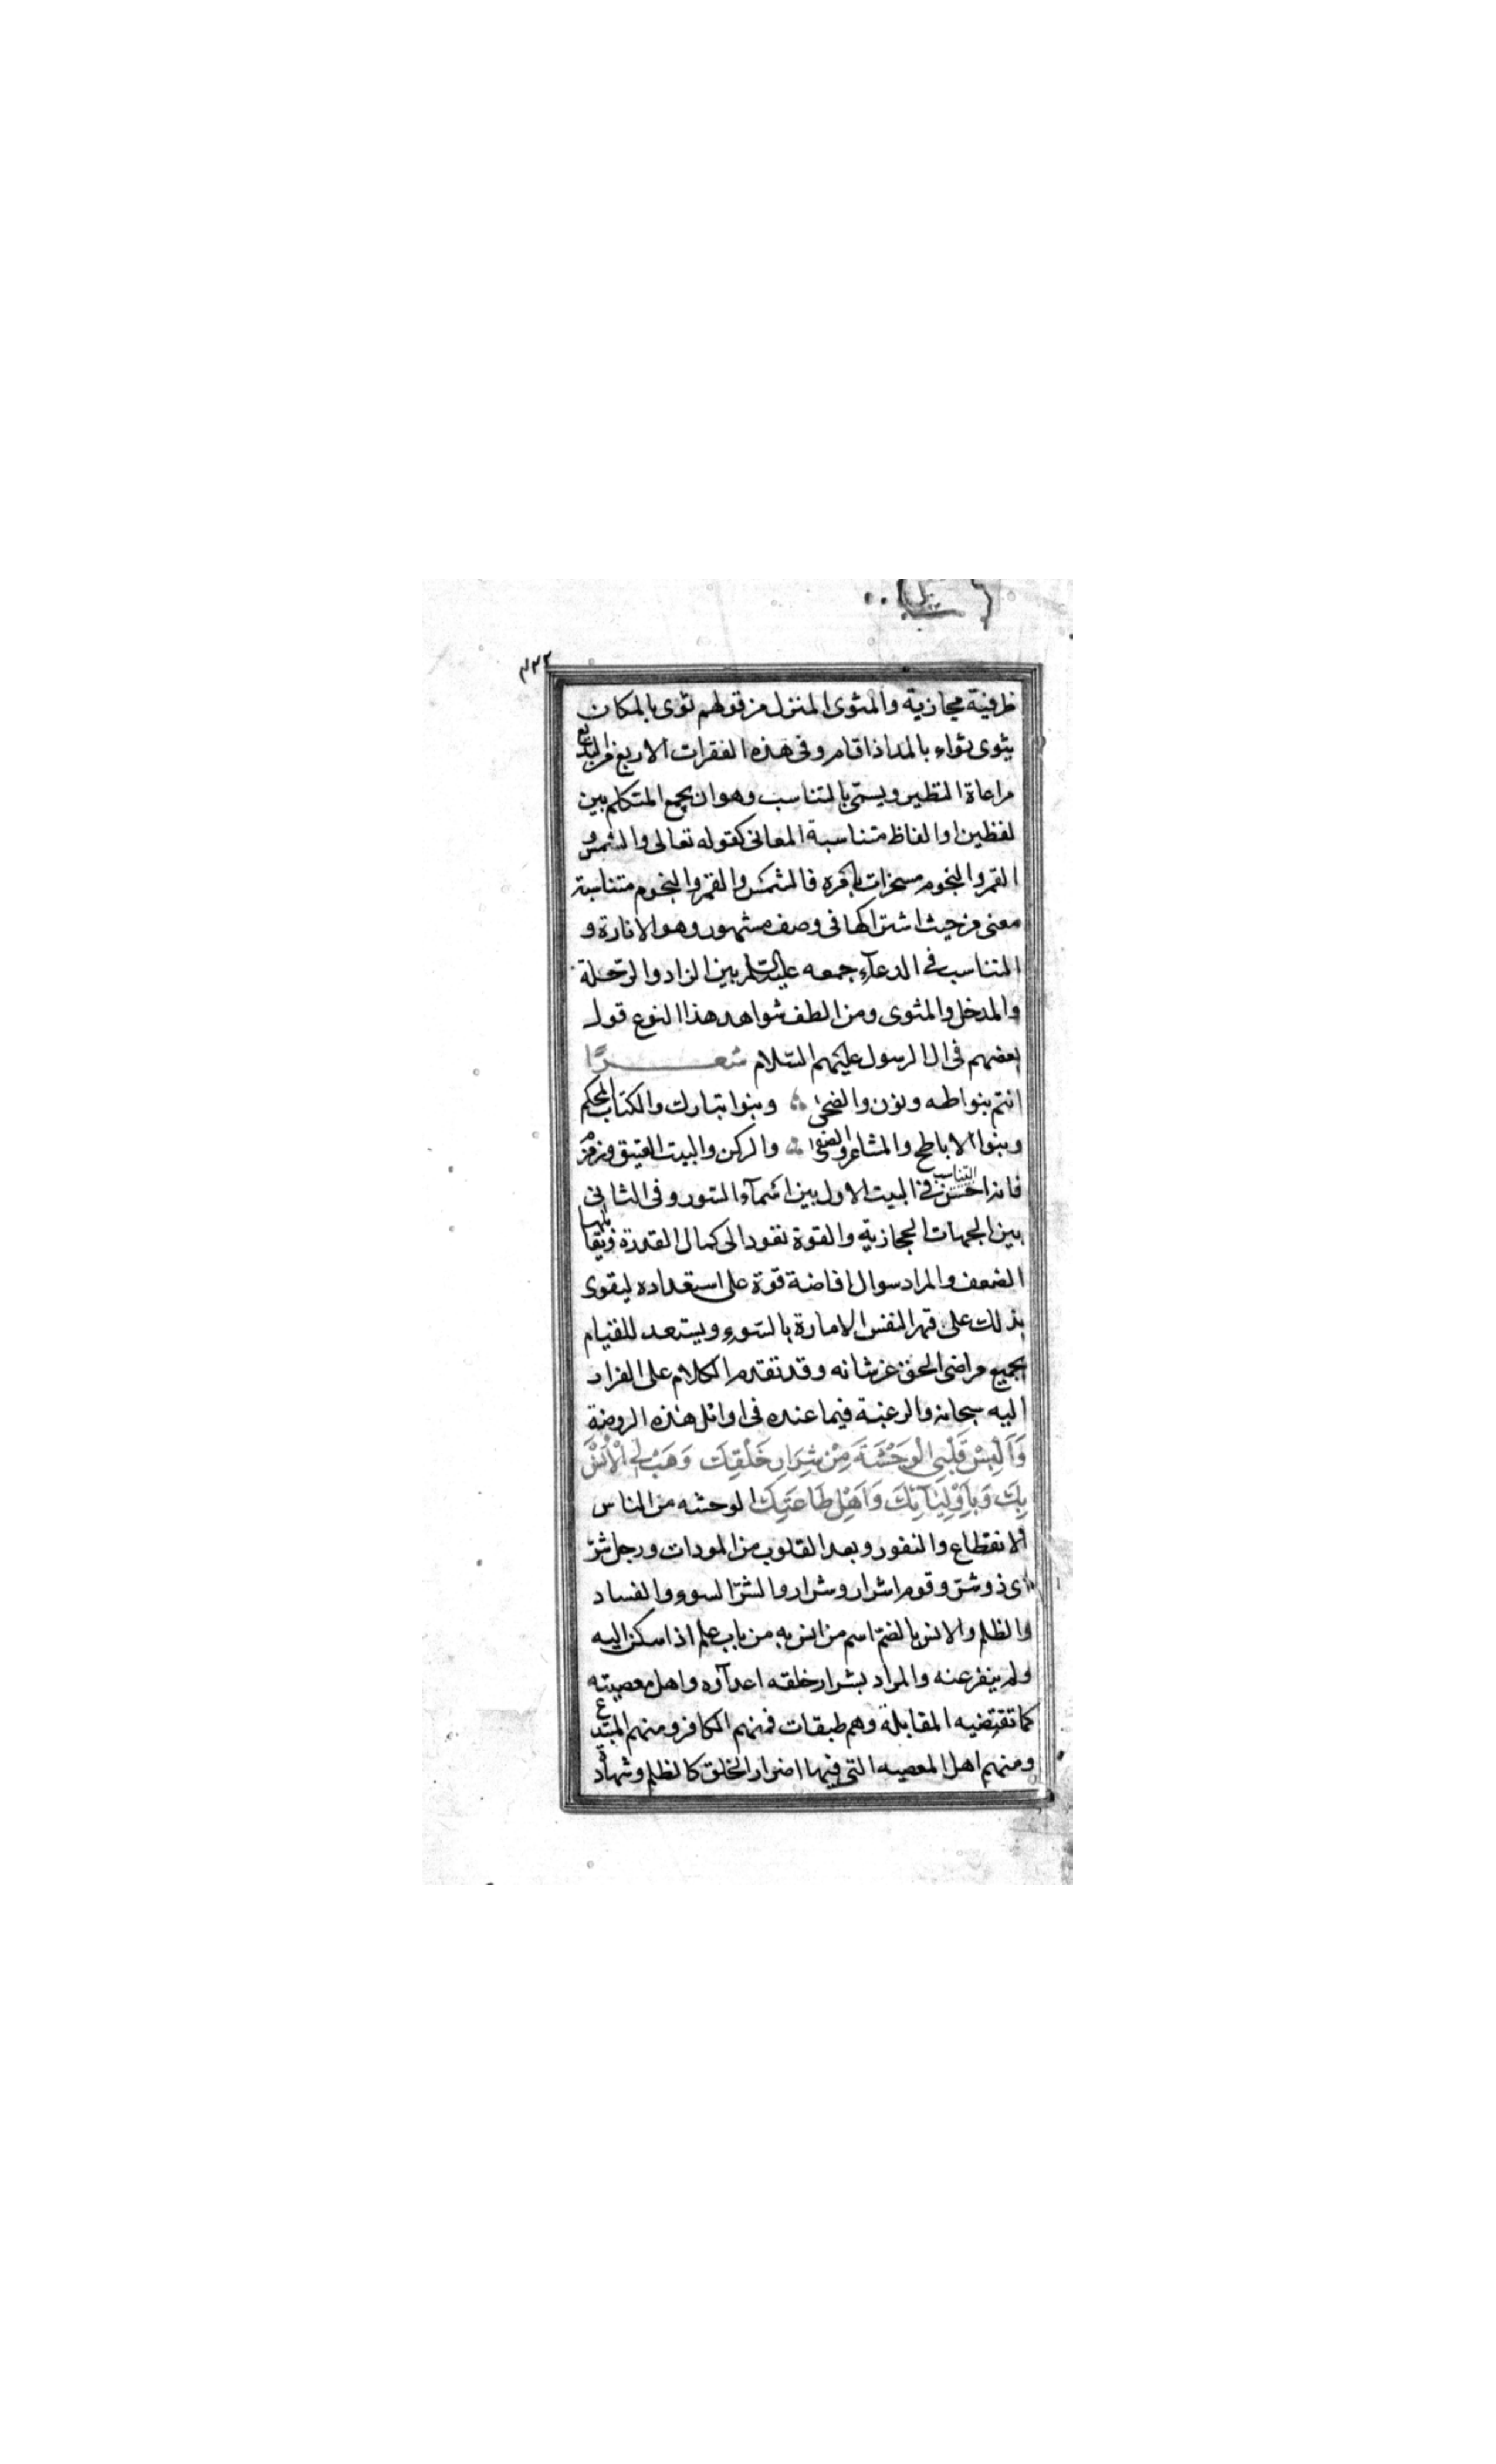 ظرفية مجازية والمثوى المنزل من قولهم ثوى بالمكان
يثوى ثواء بالمد اذا اقام وفى هذه الفقرات الاربع من البديع
مراعاة النظير ويسمّى بالتناسب وهو ان يجمع المتكلم بين
لفظين او الفاظ متناسبة المعانى كقوله تعالى والشمس و
القمر والنجوم مسخرات بامره فالشمس والقمر والنجوم متناسبة
معنى من حيث اشتراكها فى وصف مشهور وهو الانارة و
التناسب فى الدعآء جمعه عليه السلم بين الزاد والرحلة
والمدخل والمثوى ومن الطف شواهد هذا النوع قول
بعضهم فى ال الرسول عليهم السّلام شعرًا
انتم بنوا طه ونون والضحى وبنوا تبارك والكتاب المحكم
وبنوا الاباطح والمشاعر والصفا والركن والبيت العتيق وزمزم
فانه احسن التناسب فى البيت الاول بين اسمآء السّور وفى الثانى
بين الجهات الحجازية والقوة تقود الى كمال القدرة ويقابلها
الضعف والمراد سوال افاضة قوة على استعداده ليقوى
بذلك على قهر النفس الامارة بالسّوء ويستعد للقيام
بجميع مراضى الحق عز شانه وقد تقدم الكلام على الفرار
اليه سبحانه والرغبة فيما عنده فى اوائل هذه الروضة
وَاَلْبِسْ قَلْبِي الْوَحْشَةَ مِنْ شِرَارِ خَلْقِكَ وَهَبْ لِي الْاُنْسَ
بِكَ وَبِاَوْلِيَآئِكَ وَاَهْلِ طَاعَتِكَ الوحشه من الناس
الانقطاع والنفور وبعد القلوب من المودات ورجل شرّ
اى ذو شرّ وقوم اشرار وشرار والشرّ السوء والفساد
والظلم والانس بالضمّ اسم من انس به من باب علم اذا سكن اليه
ولم ينفر عنه والمراد بشرار خلقه اعدآؤه واهل معصيته
كما تقتضيه المقابلة وهم طبقات فمنهم الكافر ومنهم المبتدع
ومنهم اهل المعصيه التى فيها اضرار الخلق كالظلم وشهادة